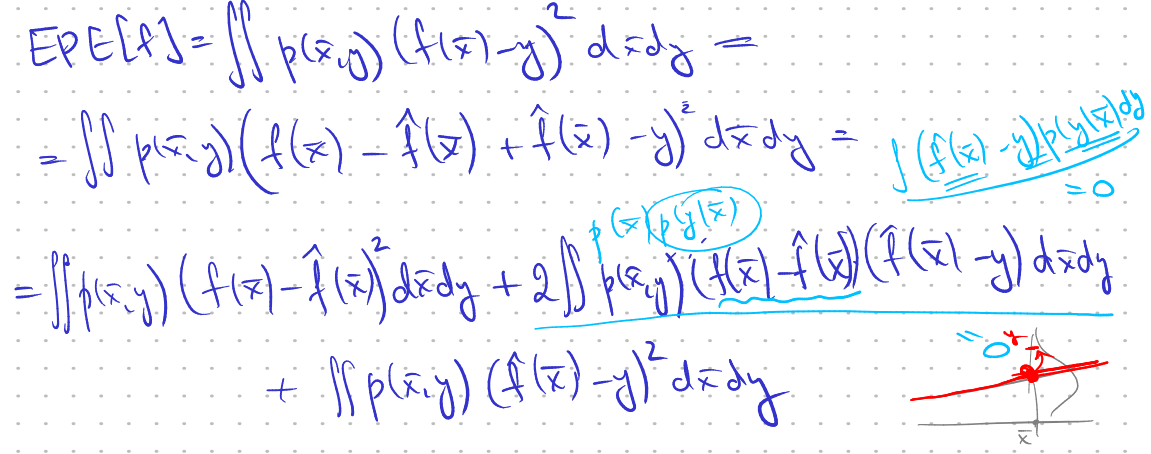 EPE[f] = ∬ p(x̄,y) (f(x̄) − y)² dx̄dy =
= ∬ p(x̄,y) (f(x̄) − f̂(x̄) + f̂(x̄) − y)² dx̄dy =
∫ (f̂(x̄) − y) p(y|x̄) dy
= 0
p(x̄) p(y|x̄)
= ∬ p(x̄,y) (f(x̄) − f̂(x̄))² dx̄dy + 2∬ p(x̄,y) (f(x̄) − f̂(x̄)) (f̂(x̄) − y) dx̄dy
= 0
y
+ ∬ p(x̄,y) (f̂(x̄) − y)² dx̄dy
x̄